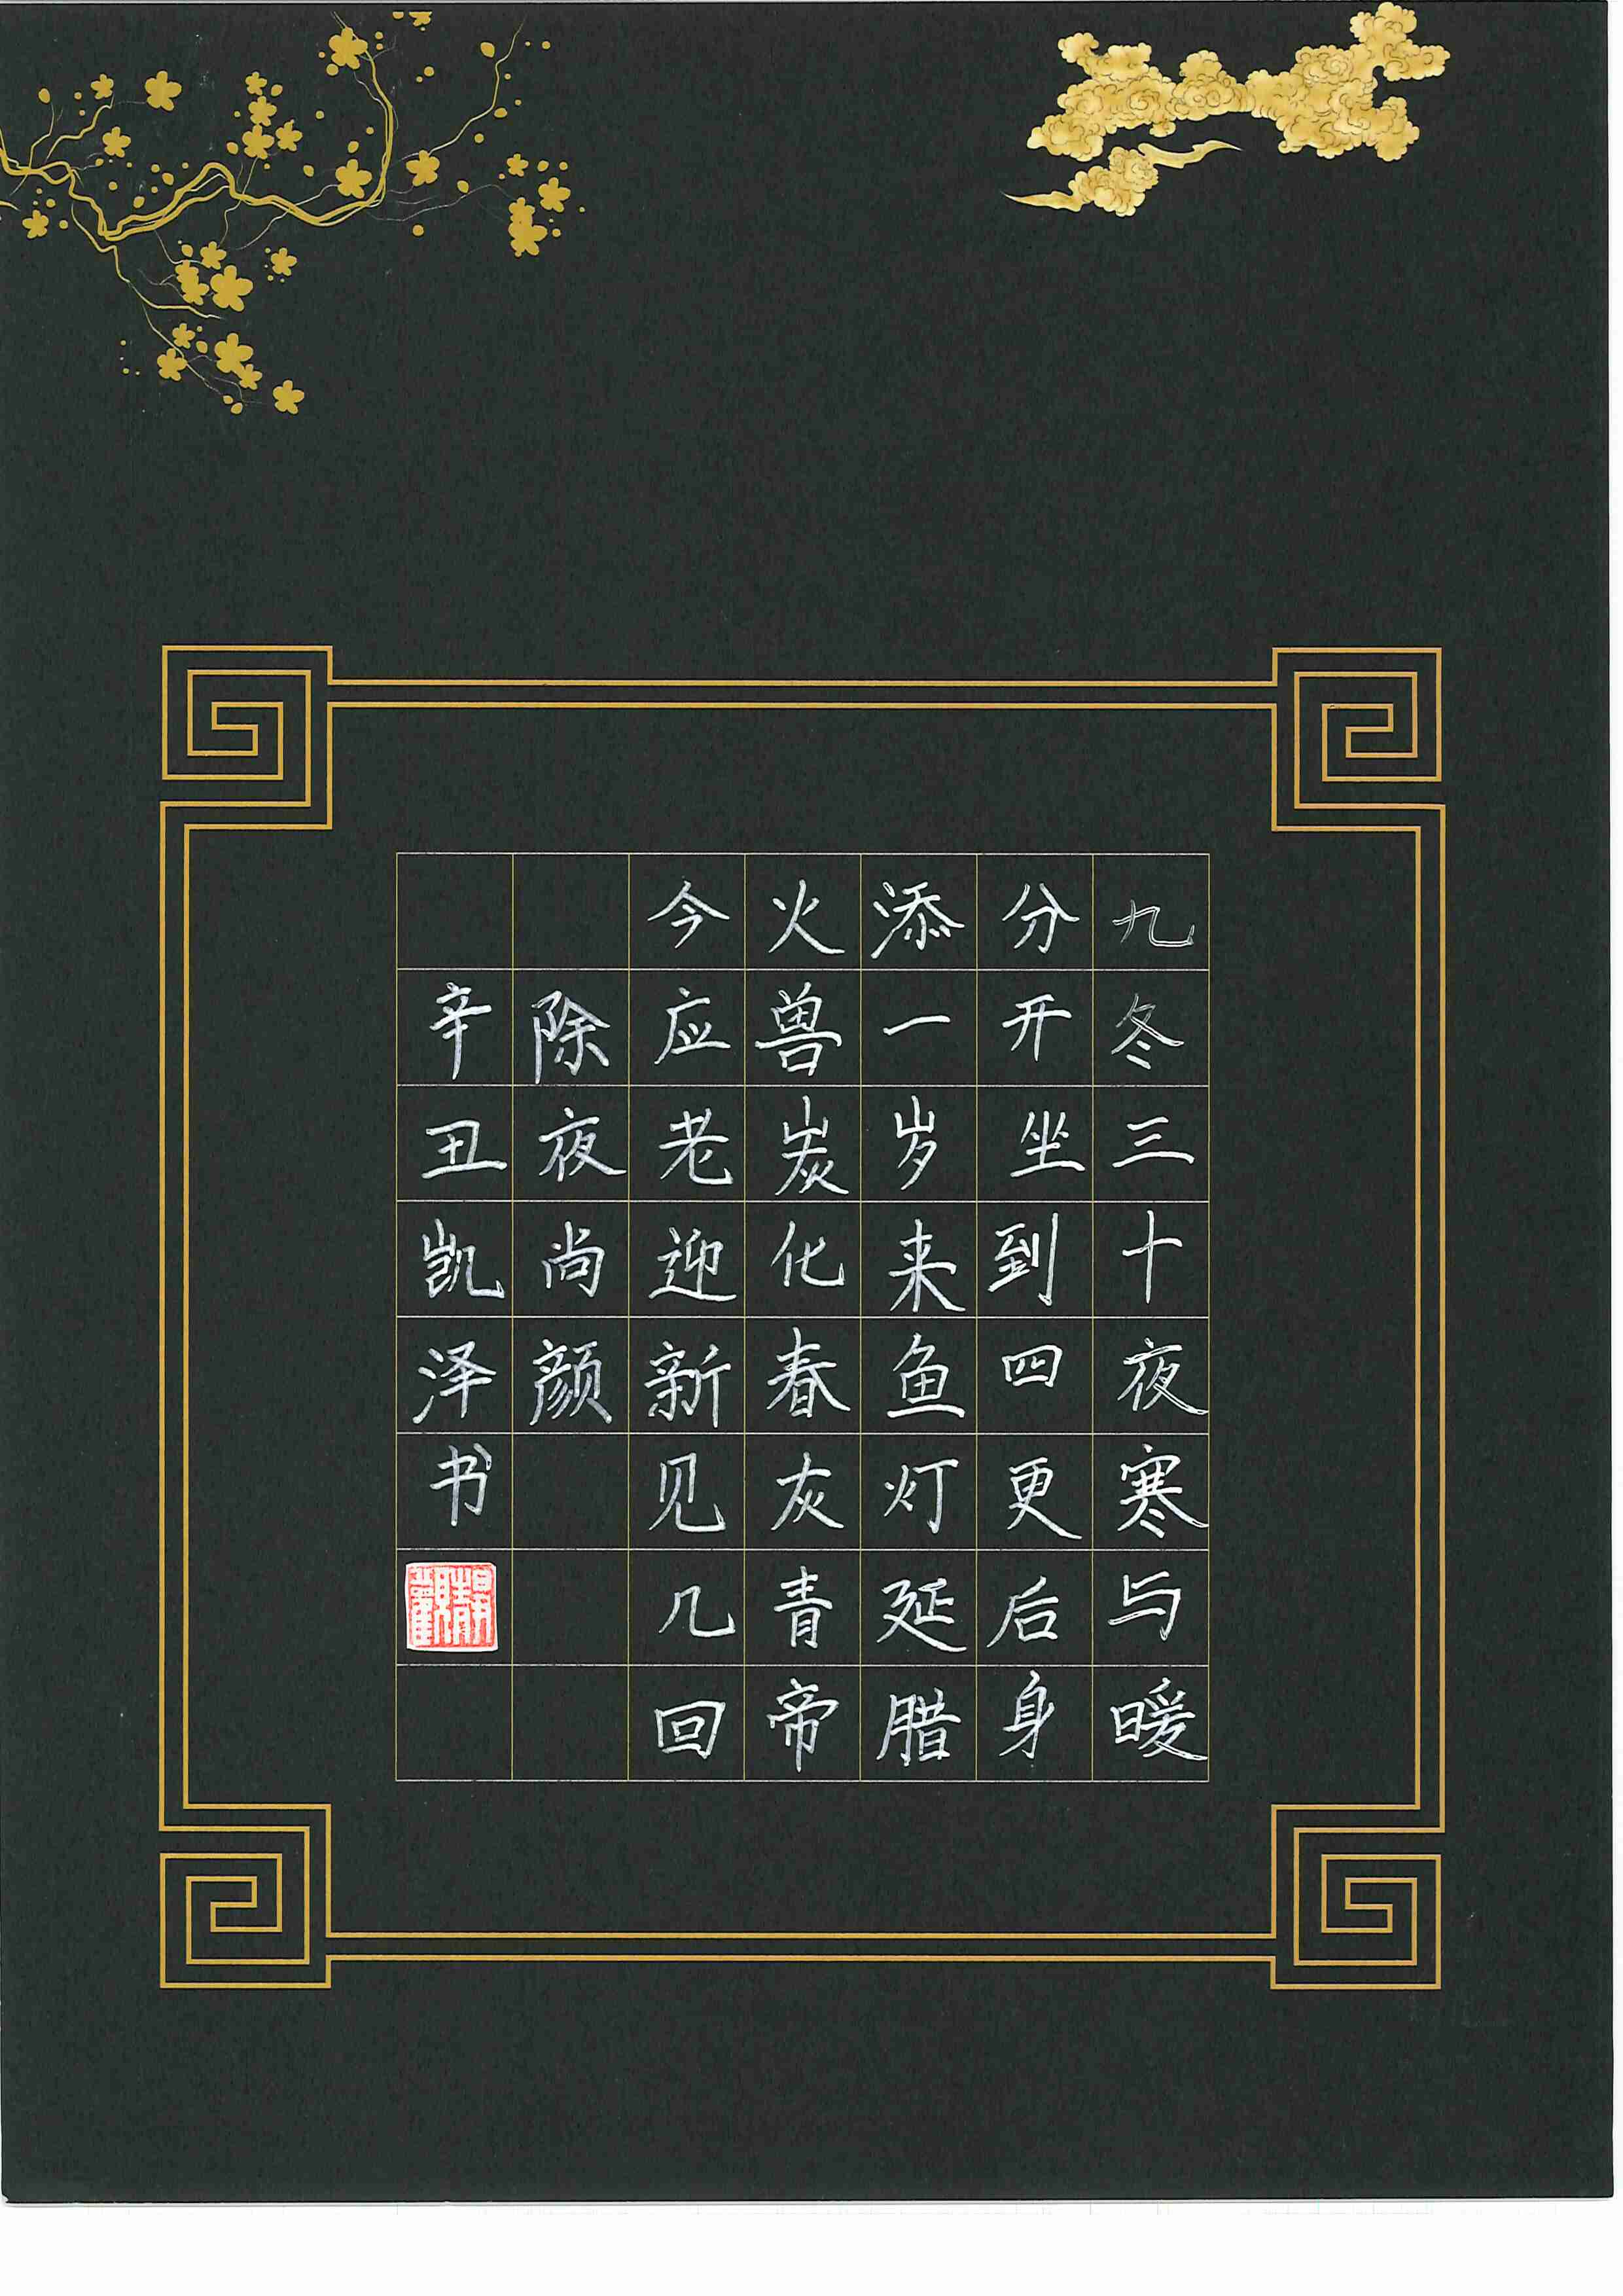 九冬三十夜寒与暖
分开坐到四更后身
添一岁来鱼灯延腊
火兽炭化春灰青帝
今应老迎新见几回
除夜尚颜
辛丑凯泽书